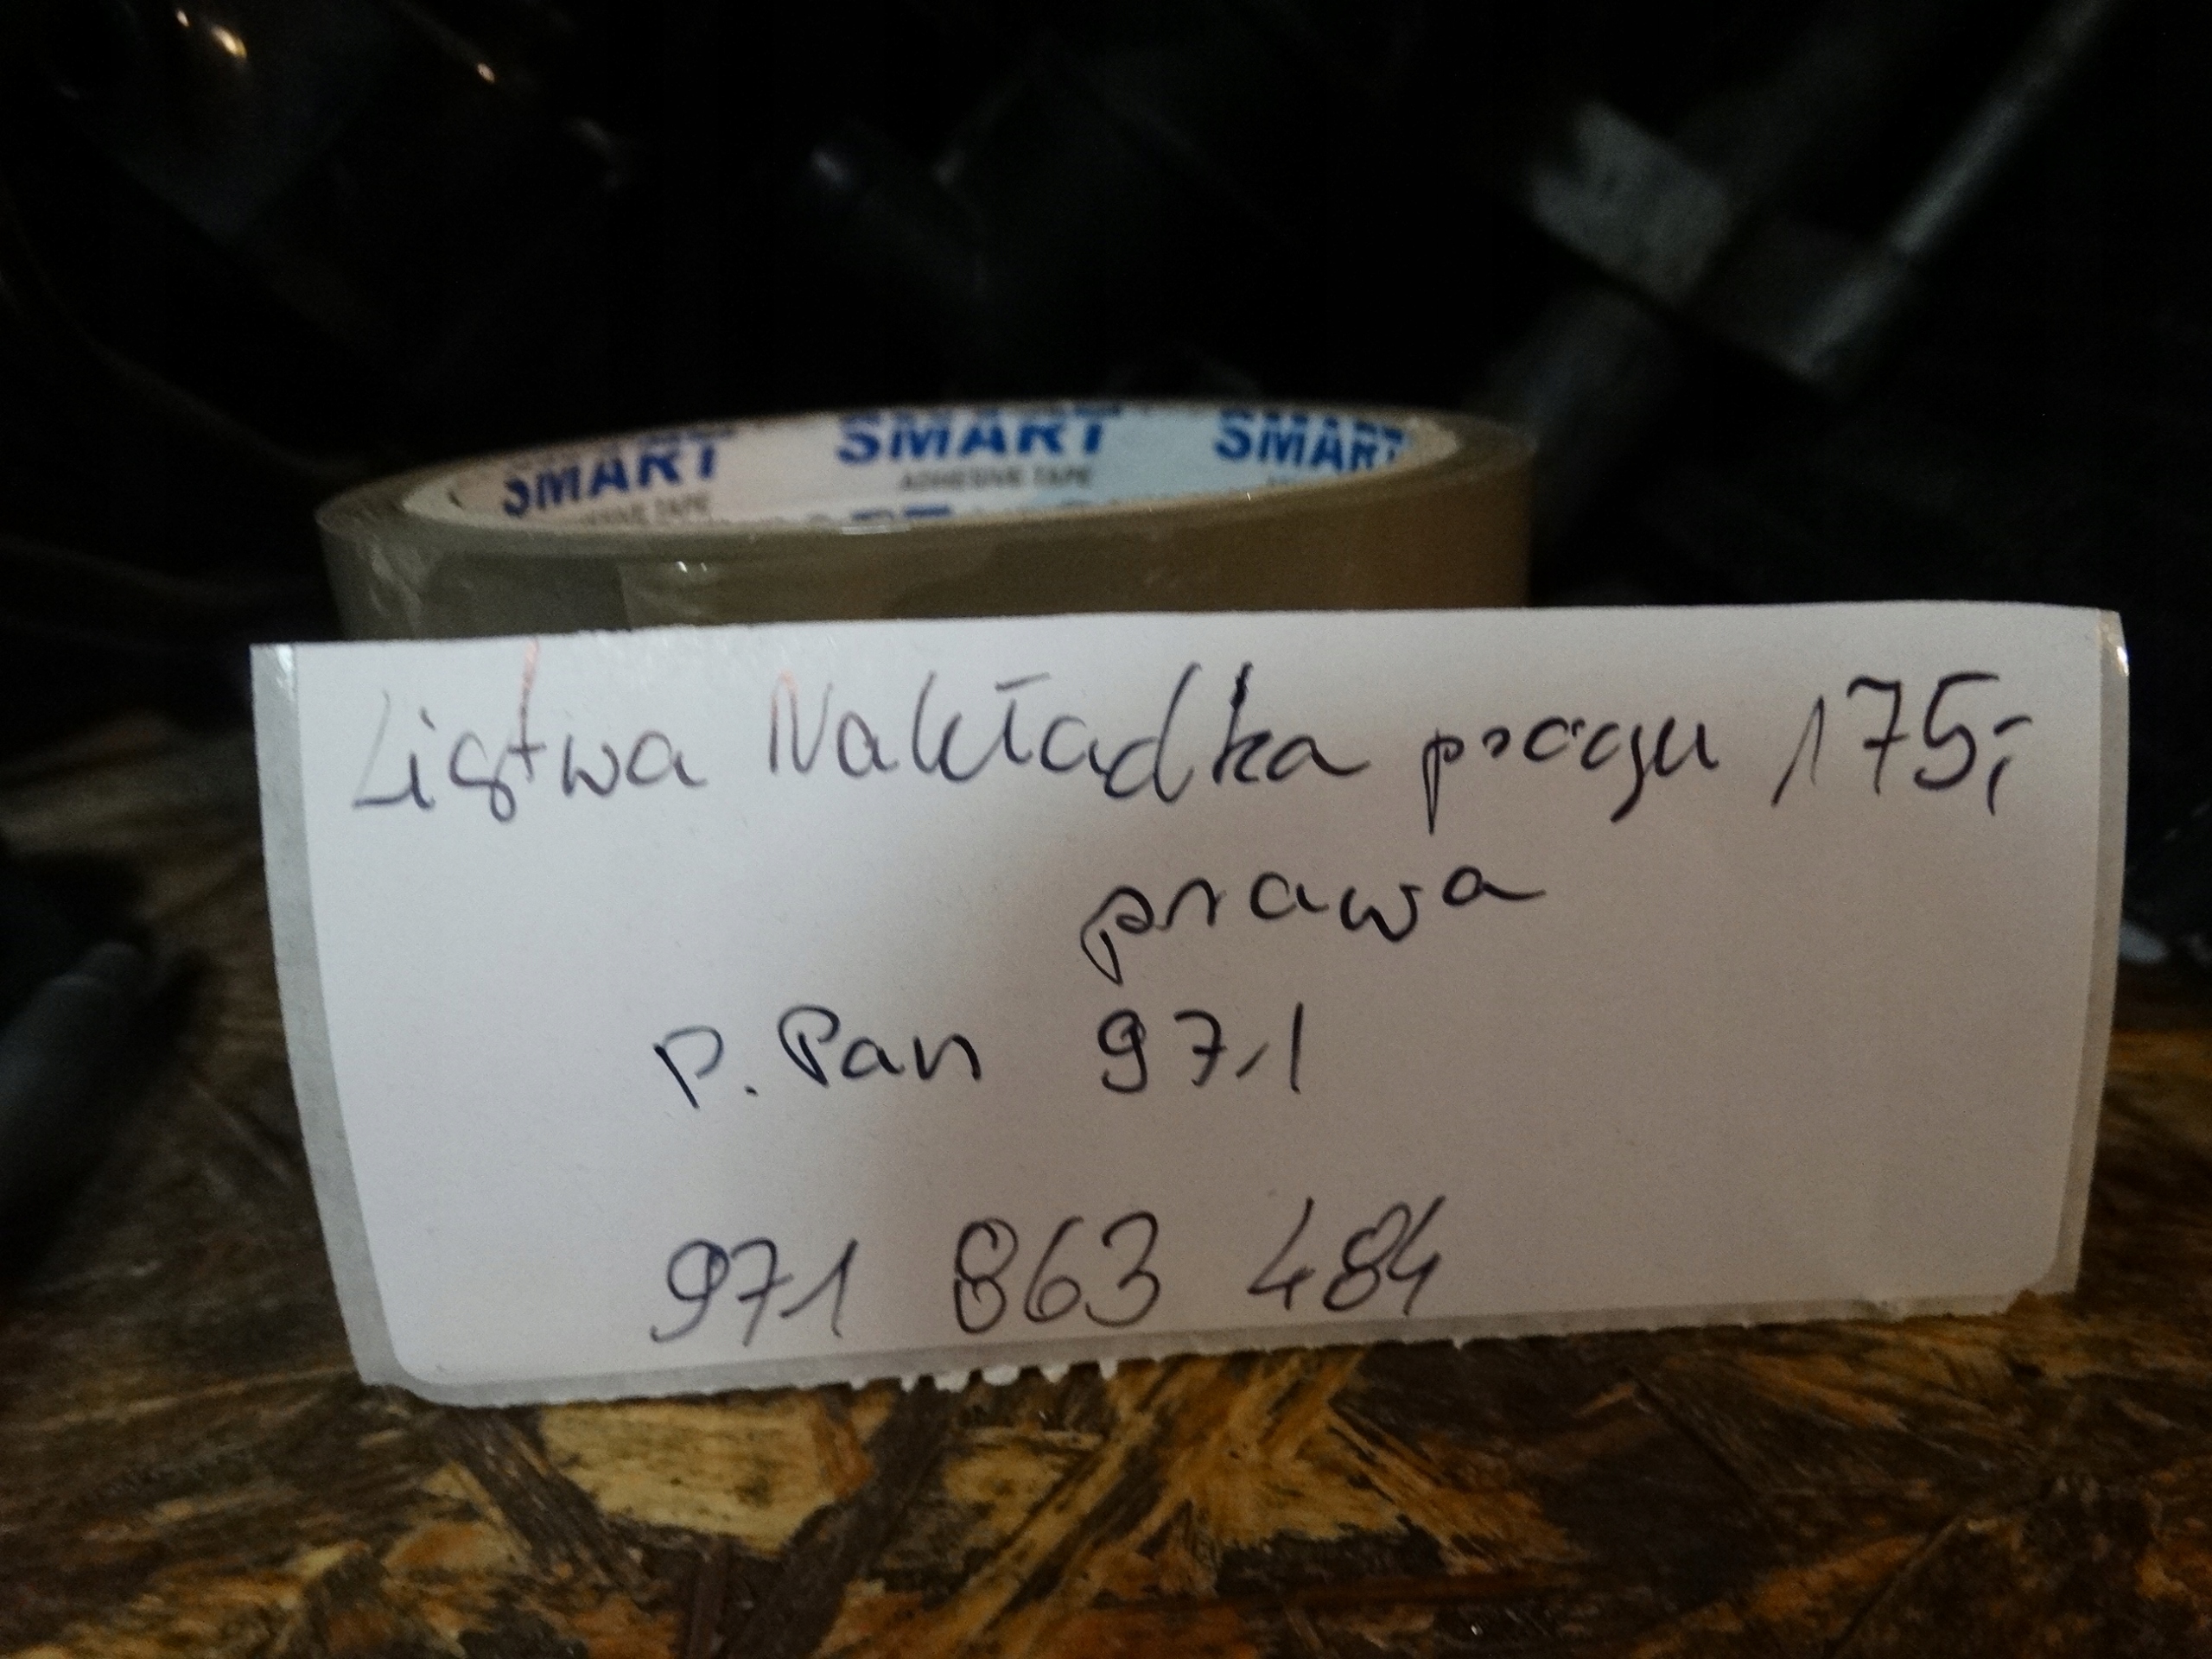 SMART SMART SMART
ADHESIVE TAPE
Listwa Nakładka progu 175,-
prawa
P. Pan 971
971 863 484